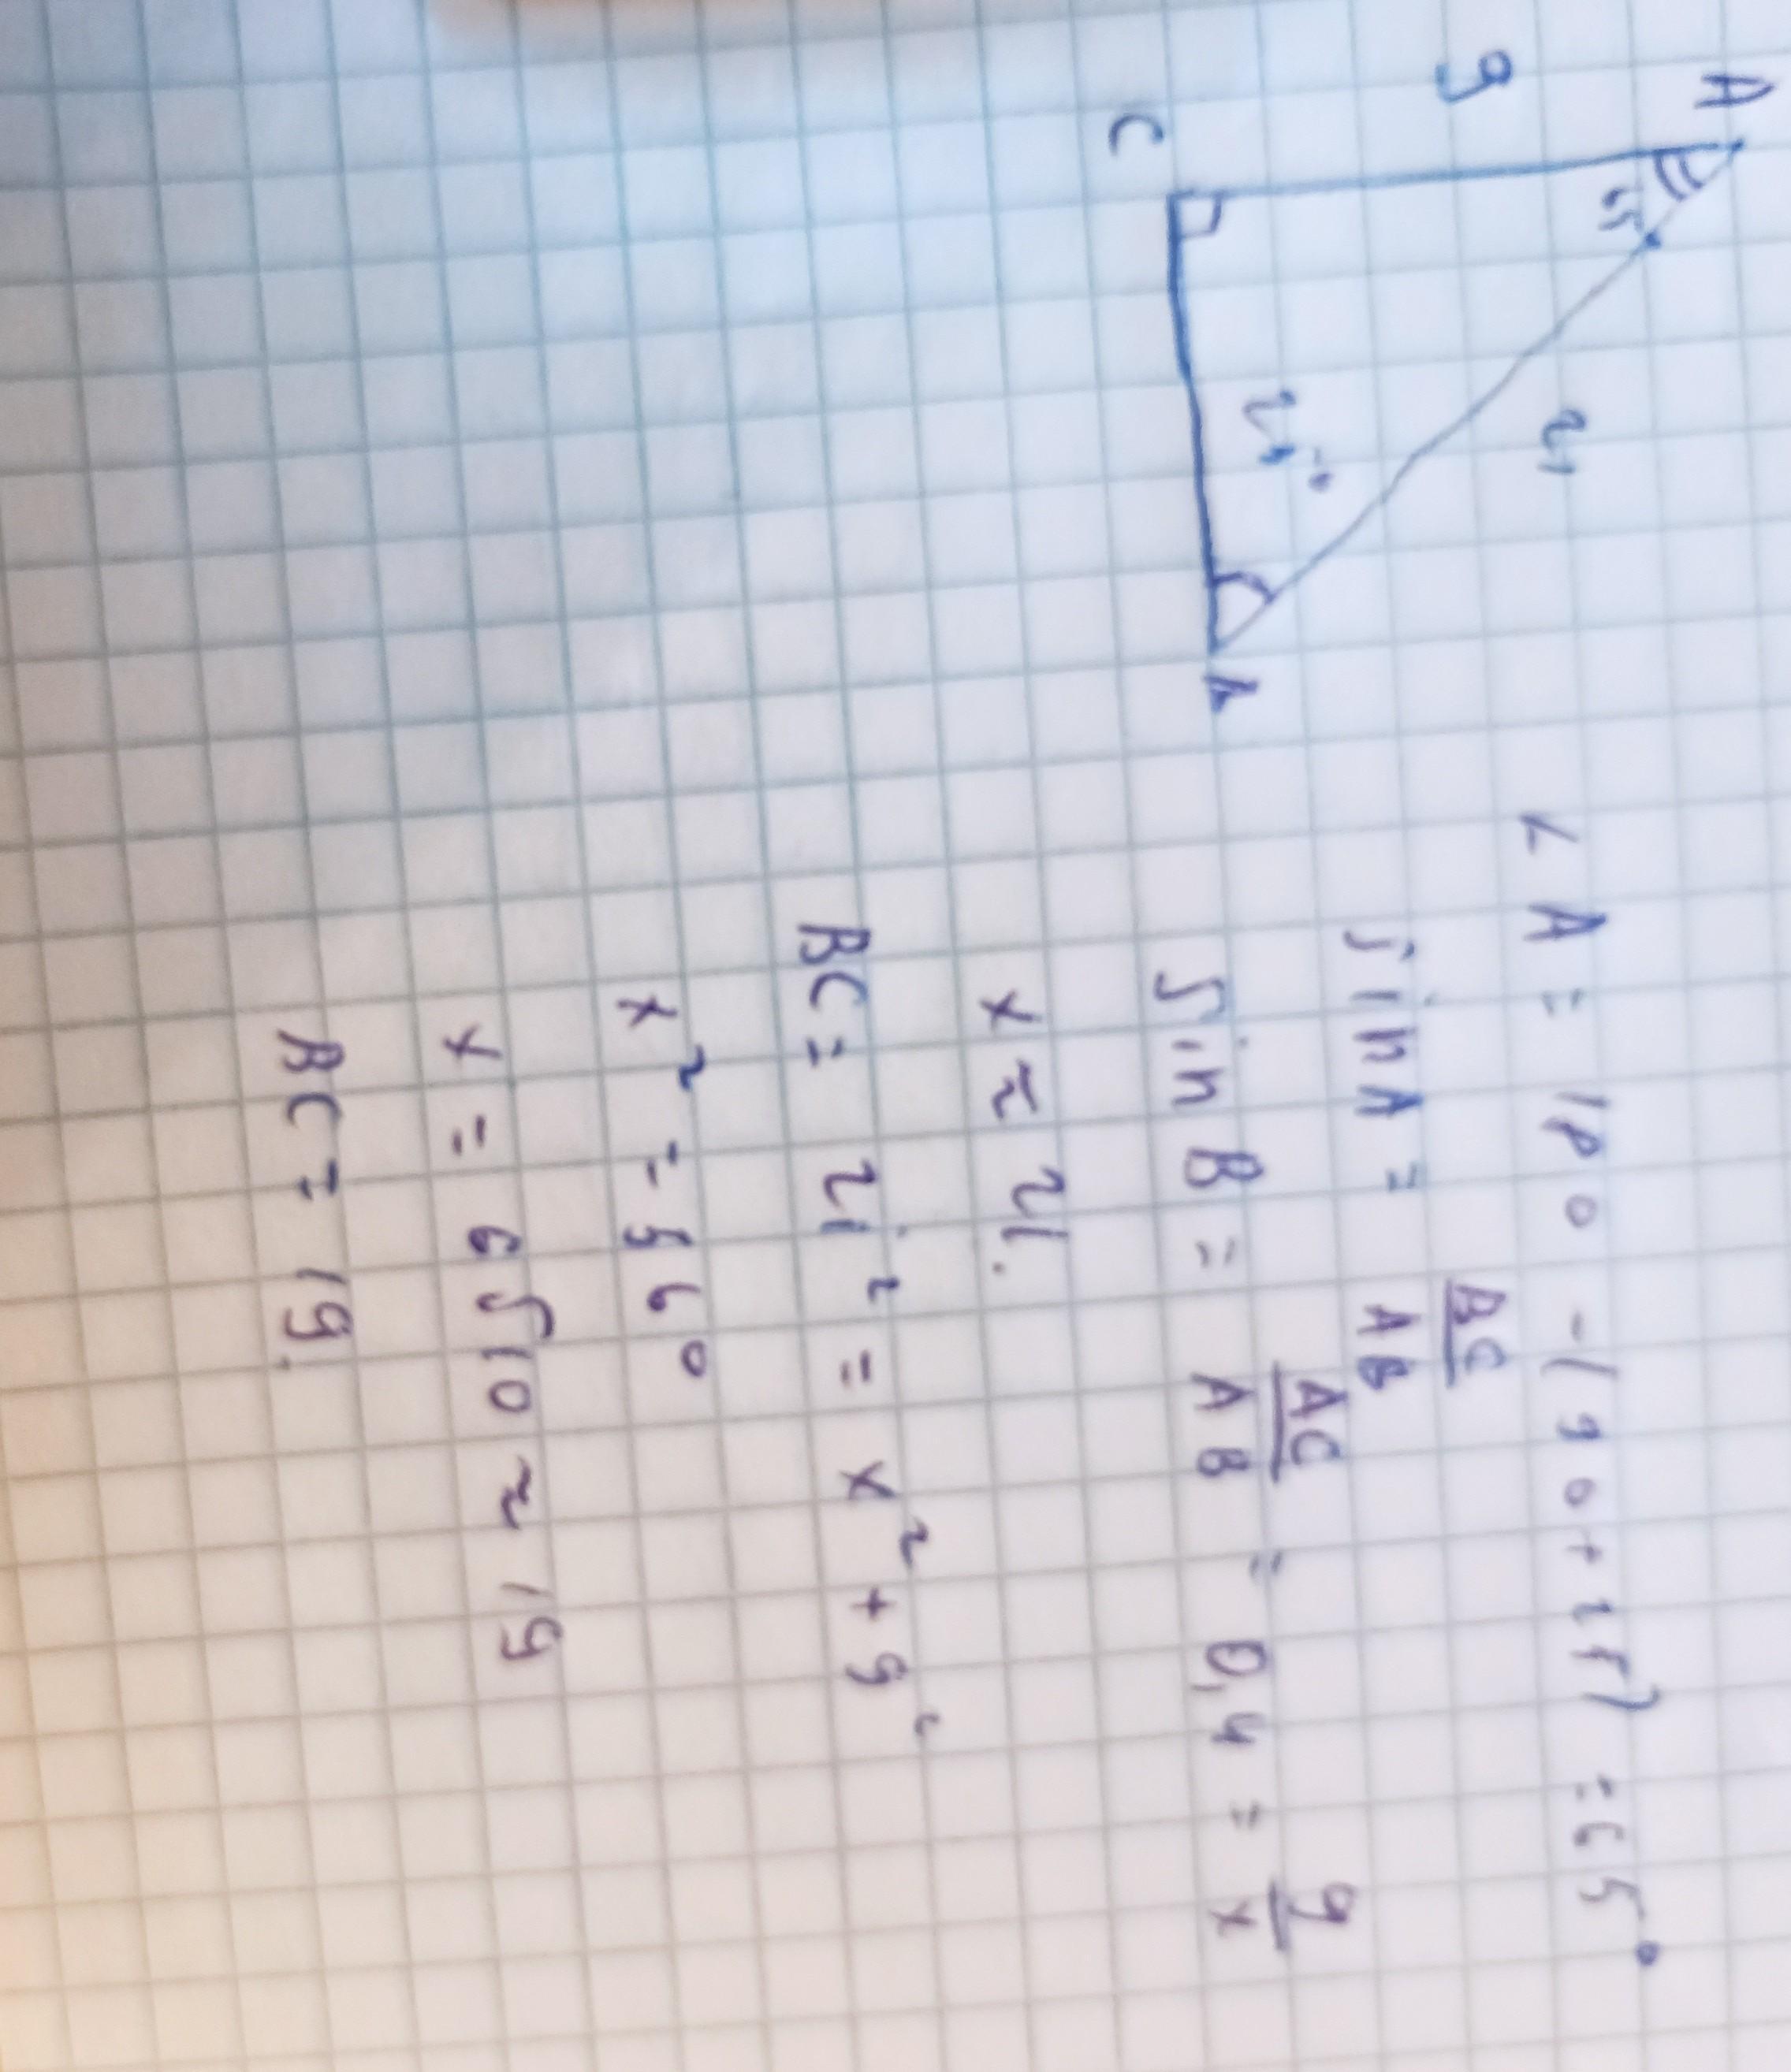 A
9
65°
21
C
25°
B
∠A = 180 - (90 + 25) = 65°
sin A = BC/AB
sin B = AC/AB = 0,4 = 9/x
x ≈ 21.
BC = 21² = x² + 9²
x² = 360
x = 6√10 ≈ 19
BC = 19.